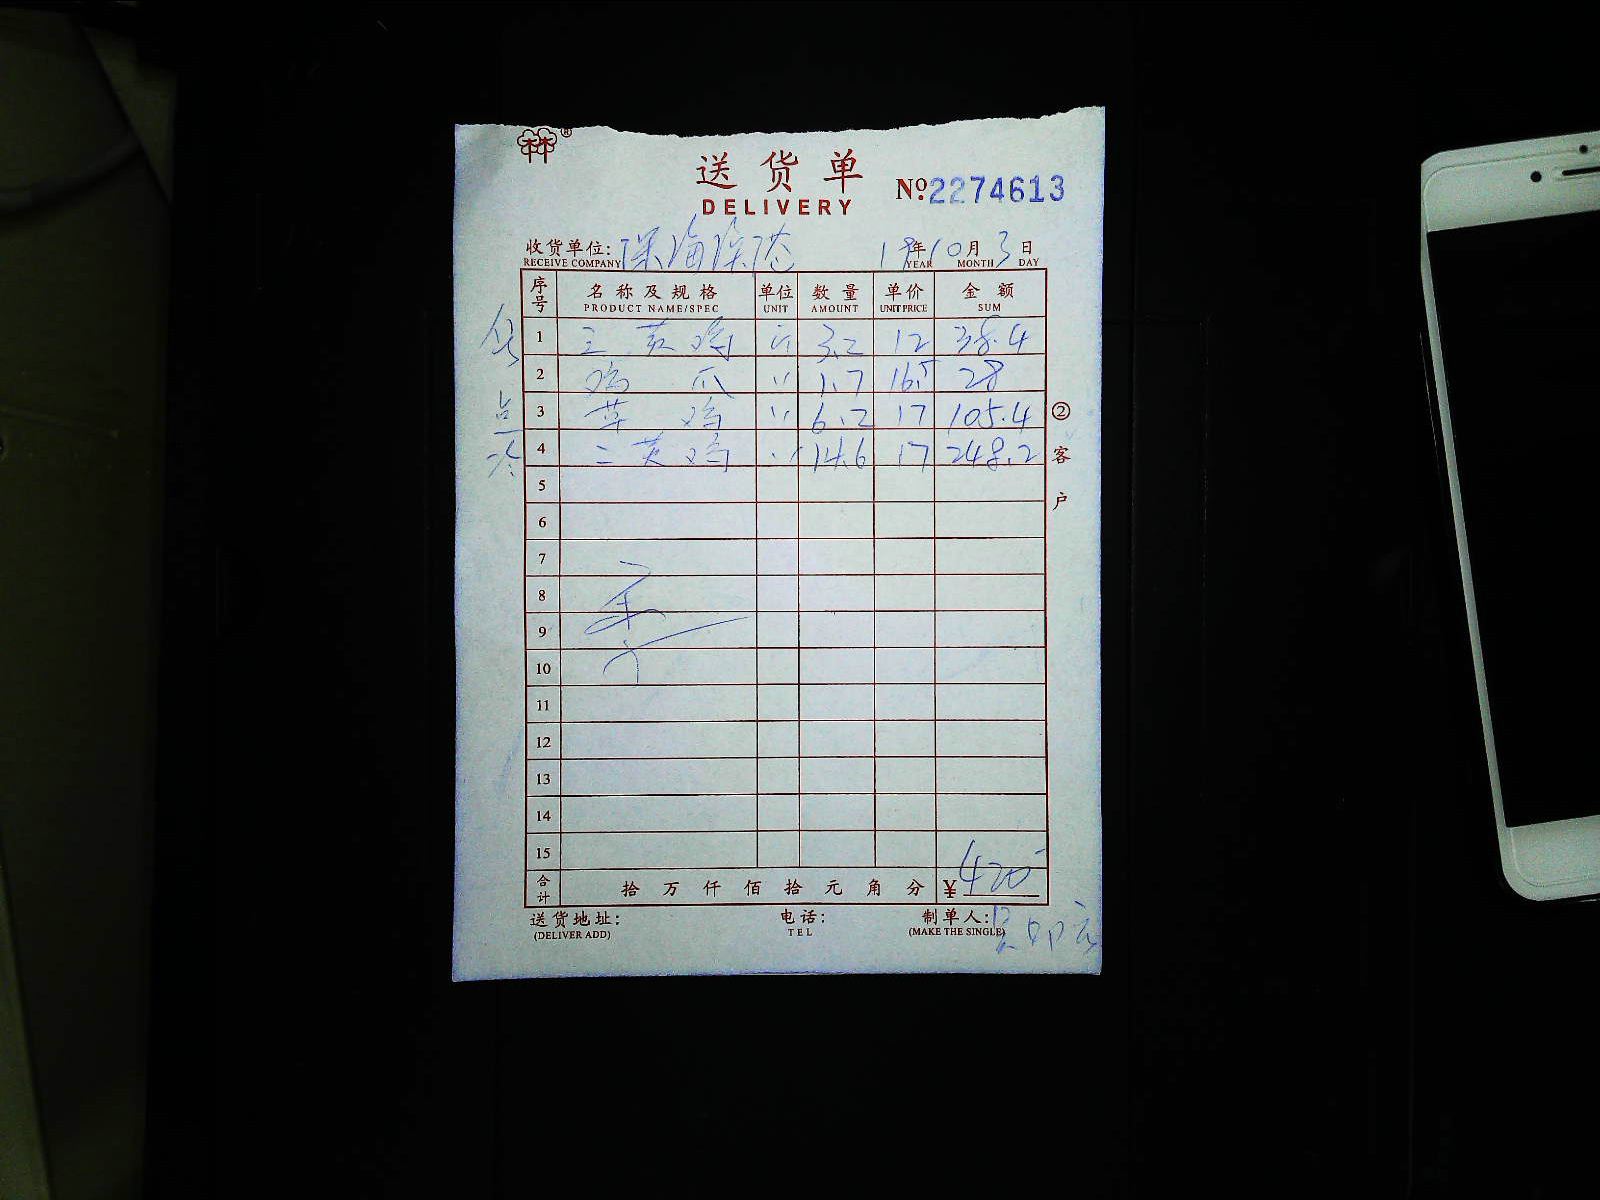 ®
送货单
DELIVERY
Nº 2274613
收货单位: 深海渔港 19年10月3日
RECEIVE COMPANY YEAR MONTH DAY
序号 名称及规格 单位 数量 单价 金额
PRODUCT NAME/SPEC UNIT AMOUNT UNIT PRICE SUM
1 三黄鸡 斤 3.2 12 38.4
2 鸡爪 〃 1.7 16.5 28
3 草鸡 〃 6.2 17 105.4
4 三黄鸡 〃 14.6 17 248.2
5
6
7
8
9
10
11
12
13
14
15
合计 拾万仟佰拾元角分 ¥420
送货地址: 电话: 制单人:
(DELIVER ADD) TEL (MAKE THE SINGLE)
②客户
点
冷